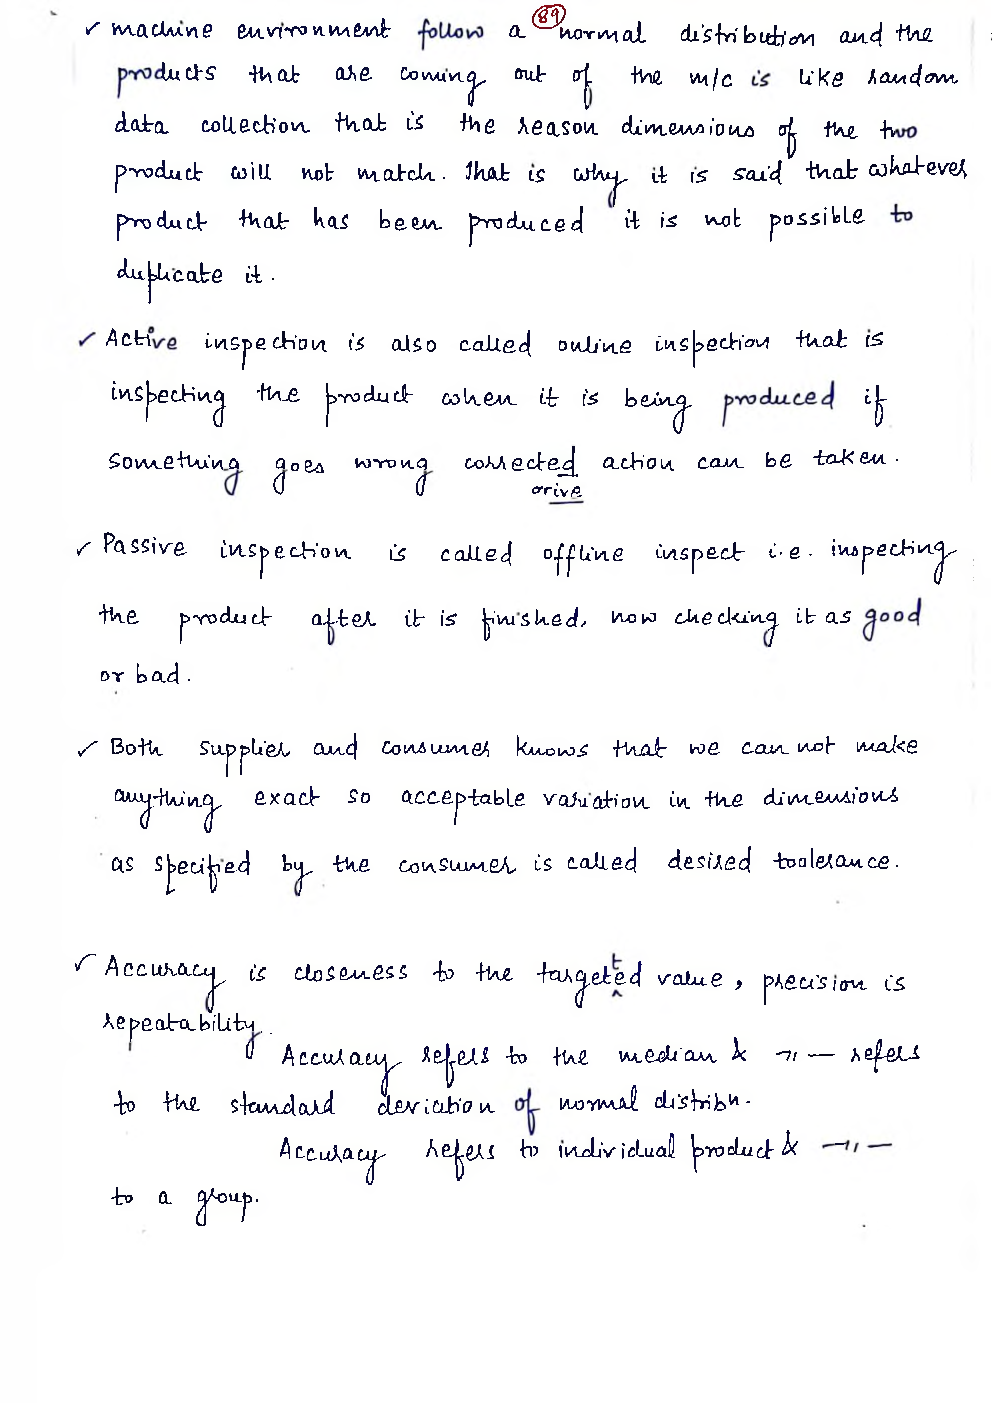 89
✓ machine environment follow a normal distribution and the
products that are coming out of the m/c is like random
data collection that is the reason dimensions of the two
product will not match. That is why it is said that whatever
product that has been produced it is not possible to
duplicate it.
✓ Active inspection is also called online inspection that is
inspecting the product when it is being produced if
something goes wrong corrected action can be taken.
orive
✓ Passive inspection is called offline inspect i.e. inspecting
the product after it is finished, now checking it as good
or bad.
✓ Both supplier and consumer knows that we can not make
anything exact so acceptable variation in the dimensions
as specified by the consumer is called desired toolerance.
✓ Accuracy is closeness to the targeted value, precision is
repeatability.
Accuracy refers to the median & —〃— refers
to the standard deviation of normal distribn.
Accuracy refers to individual product & —〃—
to a group.